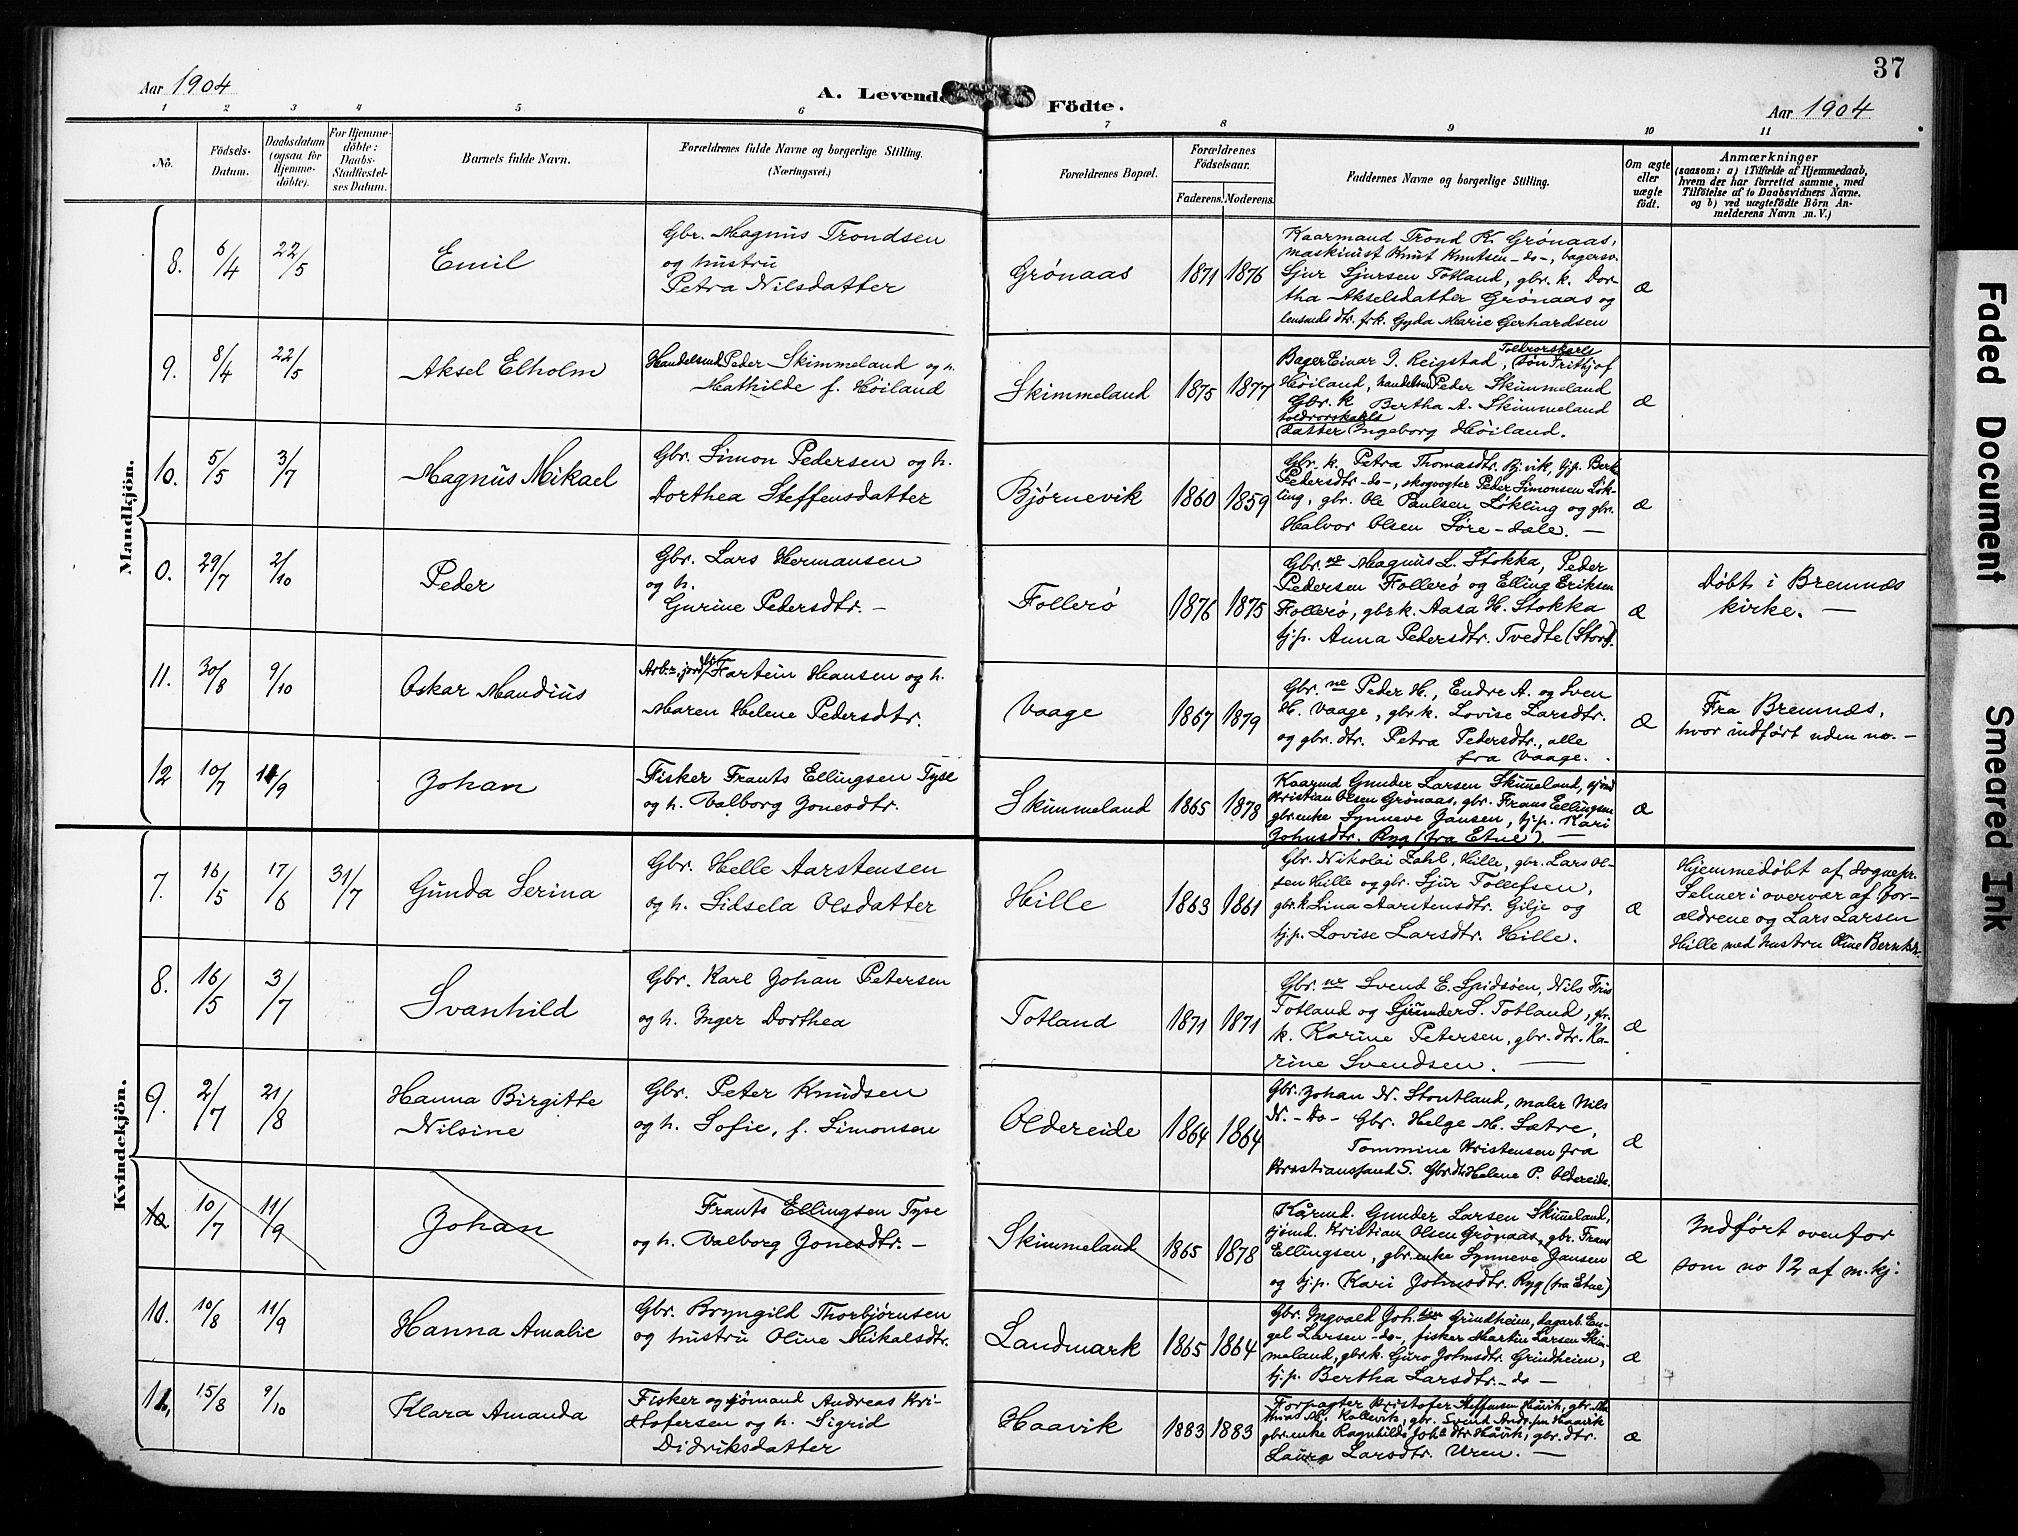 37
Aar 1904
A. Levende Födte.
Aar 1904
1 2 3 4 5 6 7 8 9 10 11
No.
Födsels-
Datum.
Daabsdatum
(ogsaa for
Hjemme-
döbte).
For Hjemme-
döbte:
Daabs-
Stadfæstel-
ses Datum.
Barnets fulde Navn.
Forældrenes fulde Navne og borgerlige Stilling.
(Næringsvei.)
Forældrenes Bopæl.
Forældrenes
Födselsaar.
Faderens. Moderens.
Faddernes Navne og borgerlige Stilling.
Om ægte
eller
uægte
födt.
Anmærkninger
(saasom: a) i Tilfælde af Hjemmedaab,
hvem der har forrettet samme, med
Tilföielse af to Daabsvidners Navne.
og b) ved uægtefödte Börn An-
melderens Navn m. V.)
Mandkjön.
8. 6/4 22/5 Emil
Gbr. Magnus Trondsen
og hustru
Petra Nilsdatter
Grønaas 1871 1876
Kaarmand Trond K. Grønaas,
maskinist Knut Knutsen -do-, bagersv.
Sjur Sjursen Totland, gbr. k. Dor-
tha Akselsdatter Grønaas og
lensmds dtr. frk. Gyda Marie Gerhardsen
æ
9. 8/4 22/5 Aksel Elholm
Handelsmd Peder Skimmeland og h.
Mathilde f. Høiland
Skimmeland 1875 1877
Bager Einar J. Reigstad, Toldrorskarls søn Frithjof
Høiland, handelsm Peder Skimmeland
Gbr. k Bertha A. Skimmeland
toldrorskarls
datter Ingeborg Høiland.
æ
10. 5/5 3/7 Magnus Mikael
Gbr. Simon Pedersen og h.
Dorthea Steffensdatter
Bjørnevik 1860 1859
Gbr. k. Petra Thomasdtr. Bj.vik, tj.p. Berte
Pedersdtr -do-, skogvogter Peder Simonsen Løk-
ling, gbr. Ole Paulsen Løkling og gbr.
Halvor Olsen Søre-dale. —
æ
0. 29/7 2/10 Peder
Gbr. Lars Hermansen
og h.
Gurine Pedersdtr. —
Follerø 1876 1875
Gbr. ne Magnus L. Stokka, Peder
Pedersen Follerø og Elling Eriksen
Follerø, gbr k. Aasa H. Stokka
tj.p. Anna Pedersdtr. Tvedte (Stord).
æ
Døbt i Bremnæs
kirke. —
11. 30/8 9/10 Oskar Mandius
Arb. jordbr Tartein Hansen og h.
Maren Helene Pedersdtr.
Vaage 1867 1879
Gbr. ne Peder H., Endre A. og Sven
H. Vaage, gbr k. Lovise Larsdtr.
og gbr. dtr. Petra Pedersdtr., alle
fra Vaage.
æ
Fra Bremnæs,
hvor indført uden no. —
12 10/7 11/9 Johan
Fisker Frants Ellingsen Tyse
og h. Valborg Jonesdtr.
Skimmeland 1865 1878
Kaarmd Gunder Larsen Skimeland, sjømd
Kristian Olsen Grønaas, gbr. Frans Ellingsen
gbr.enke Synneve Jansen, tj.p. Kari
Johnsdtr. Ryg (fra Etne).
æ
Kvindekjön.
7. 16/5 17/6 31/7 Gunda Serina
Gbr. Helle Aarstensen
og h. Sidsela Olsdatter
Hille 1863 1861
Gbr. Nikolai Zahl, Hille, gbr. Lars Ol-
sen Hille og gbr. Sjur Tollefsen,
gbr k Lina Aarstensdtr. Gilje og
tj.p. Lovise Larsdtr. Hille.
æ
Hjemmedøbt af sognepr.
Selmer i overvær af for-
ældrene og Lars Larsen
Hille med hustru Oline Berntsdr.
8. 16/5 3/7 Svanhild
Gbr. Karl Johan Petersen
og h. Inger Dorthea
Totland 1871 1871
Gbr. ne Svend E. Spidsøen, Nils Fris
Totland og Gunder S. Totland, gbr.
k. Karine Petersen, gbr. dtr. Ka-
rine Svendsen. —
æ
9. 2/7 21/8 Hanna Birgitte
Nilsine
Gbr. Peter Knudsen
og h. Sofie, f. Simonsen
Oldereide 1864 1864
Gbr. Johan N. Stontland, maler Nils
N. -Do- Gbr. Helge M. Sætre,
Tommine Kristensen fra
Kristianssand S. Gbr. dtr Helene P. Oldereide.
æ
10 10/7 11/9 Johan
Frants Ellingsen Tyse
og h. Valborg Jonesdtr. —
Skimmeland 1865 1878
Kårmd. Gunder Larsen Skimeland,
sjømd. Kristian Olsen Grønaas, gbr. Frans
Ellingsen, gbr. enke Synneve Jansen
og tj.p. Kari Johnsdtr. Ryg (fra Etne)
æ
Indført ovenfor
som no 12 af m.kj.
10. 10/8 11/9 Hanna Amalie
Gbr. Bryngild Thorbjørnsen
og hustru Oline Mikalsdtr.
Landmark 1865 1864
Gbr. Ingvald Joh.sen Grindheim, dagarb. En-
gel Larsen -do-, fisker Martin Larsen Skim-
meland, gbr k. Guro Johnsdtr. Grindheim,
tj.p. Bertha Larsdtr. -do-
æ
11, 15/8 9/10 Klara Amanda
Fisker og sjømand Andreas Kri-
stofersen og h. Sigrid
Didriksdatter
Haavik 1883 1883
Forpagter Kristofer Håvik, gbr.
Kallevik, gbr. Svend Andr.sen Haavik
gbr.enke Ragnhilds Joh. dtr Håvik, gbr. dtr.
Laura Larsdtr. Uren. —
æ
Faded Document
Smeared Ink